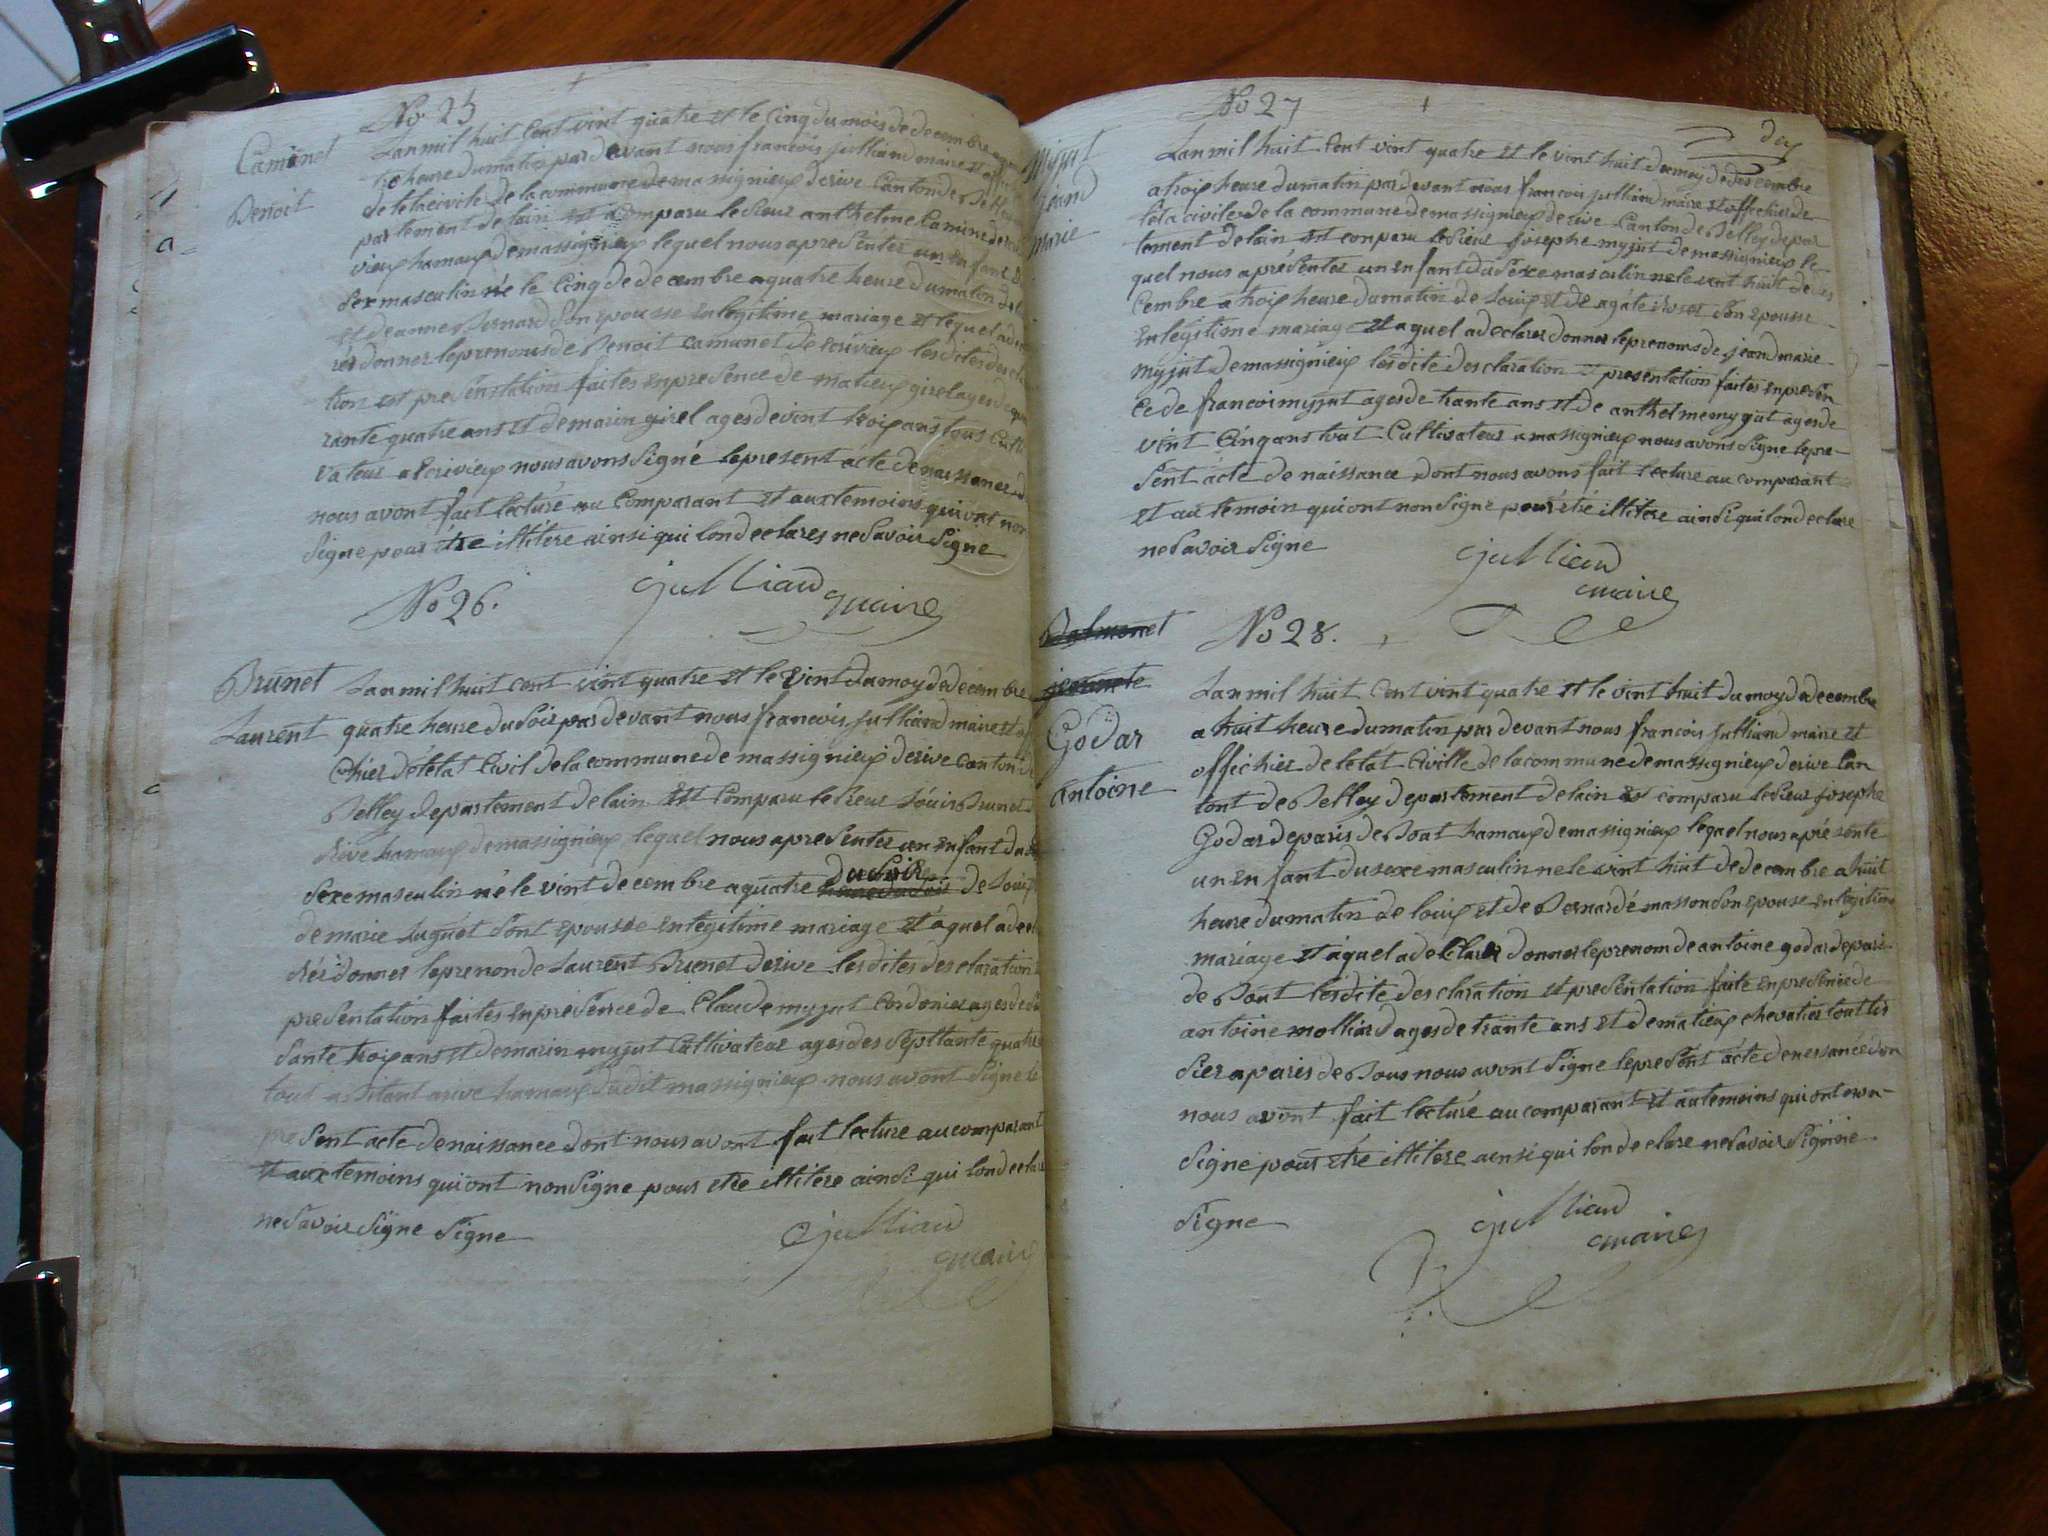 No 25
Camunet
Benoit
Lan mil huit Cent vint quatre et le Cinq du mois de decembre
heure du matin par devant nous francois julliand maire et
de letat civile de la commune de massignieux de rive Canton de
partement de lain est Comparu le sieur anthelme Camunet
vieux hamaux de massignieux lequel nous a presenter un enfant
sex masculin né le Cinq de decembre a quatre heure du matin de
et de anne Bernard son epousse en legitime mariage et lequel a
rér donner le prenoms de Benoit Camunet de ecrivieux les dites
tion et presentation faites en presence de matieux girel ages de
rante quatre ans et de marin girel ages de vint trois ans tous Culti
vateur a ecrivieux nous avons signé le present acte de naissance
nous avont fait lecture au Comparant et aux temoins qui ont non
signe pour etre illitere ainsi qui lon declares ne savoir signe
julliand
maire
No 26.
Brunet
Laurent
Lan mil huit cent vint quatre et le vint du moy de decembre
quatre heure du soir par devant nous francois julliand maire et
chier de létat Civil de la commune de massignieux de rive Canton
Belley departement de lain est Comparu le sieur Louis Brunet
de rive hamaux de massignieux lequel nous a presenter un enfant du
sexe masculin né le vint decembre a quatre heure du soir de Louis
du soir
de marie huguet sont epousse en legitime mariage et aquel a de
rér donner le prenon de Laurent Brunet de rive les dites desclaration
presentation faites en presence de Claude myjut Cordonier ages de
sante trois ans et de marin myjut Cultivateur ages des septtante quatre
tout abitant a rive hamaux dudit massignieux nous avont signe le
present acte de naissance dont nous avont fait lecture au comparant
et aux temoins qui ont non signe pour etre illitere ainsi qui lon declare
ne savoir signe signe
julliand
maire
No 27
dey
myjut
jeand
marie
Lan mil huit Cent vint quatre et le vint huit du moy de decembre
a trois heure du matin par devant nous francois julliand maire et offichier de
léta civile de la commune de massignieux de rive Canton de Belley depar
tement de lain est conparu le sieur josephe myjut de massignieux le
quel nous a présenter un enfant du sexe masculin ne le vint huit de des
cembre a trois heure du matin de Louis et de agate son epousse
en legitime mariage et aquel a declarer donner le prenoms de jeand marie
myjut de massignieux les dite desclaration et presentation faites en presen
ce de francois myjut ages de trante ans et de anthelme myjut ages de
vint Cinq ans tout Cultivateur a massignieux nous avons signe le pre-
sent acte de naissance dont nous avons fait lecture au comparant
et au temoin qui ont non signe pour étre illitere ainsi qui lon declare
ne savoir signe
julliand
maire
No 28.
Godar
antoine
Lan mil huit Cent vint quatre et le vint huit du moy de decembre
a huit heure du matin par devant nous francois julliand maire et
offichier de letat Civille de la commune de massignieux de rive Can
tont de Belley departement de lain est comparu le sieur josephe
Godar de paris de Bout hamaux de massignieux lequel nous a présente
un enfant du sexe masculin ne le vint huit de decembre a huit
heure du matin de louis et de Bernardé masson son epouse en legitime
mariage et aquel a declarer donner le prenom de antoine godar de paris
de Bout les dite desclaration et presentation faite en presence de
antoine molliard ages de trante ans et de matieux chevalier tout
sier a paris de Bous nous avont signe le present acte de nessance don
nous avont fait lecturé au comparant et au temoins qui ont non-
signe pour etre illitere ainsi qui lon declare ne savoir signe
signe
julliand
maire